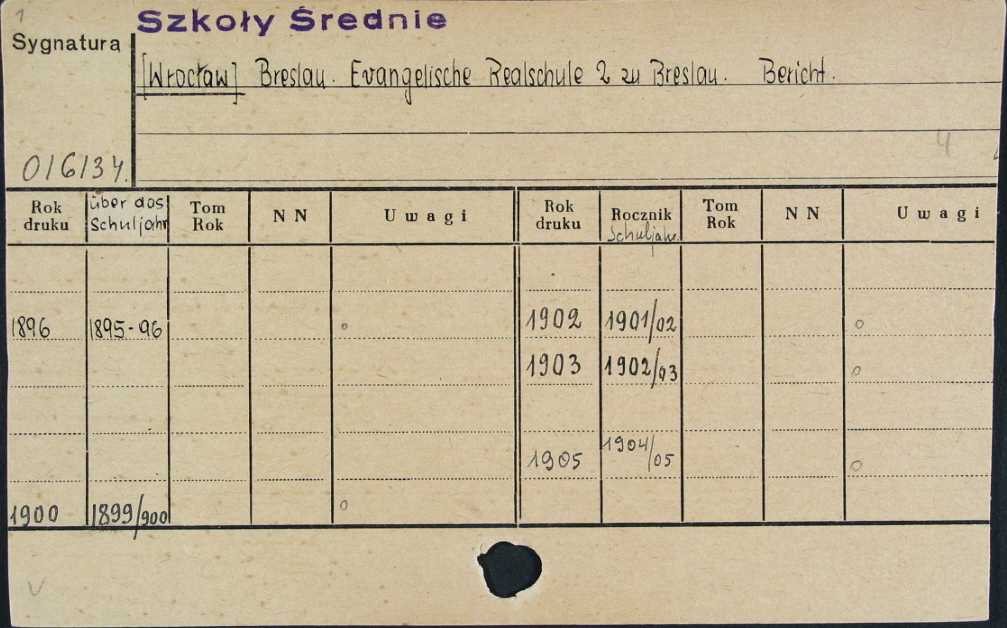 1
Szkoły Średnie
Sygnatura
[Wrocław] Breslau. Evangelische Realschule 2 zu Breslau. Bericht.
4
0/6/34.
Rok druku über das Schuljahr Tom Rok NN Uwagi Rok druku Rocznik Schuljahr. Tom Rok NN Uwagi
1896 1895-96 o 1902 1901/02 o
1903 1902/03 o
1905 1904/05 o
1900 1899/900 o
v